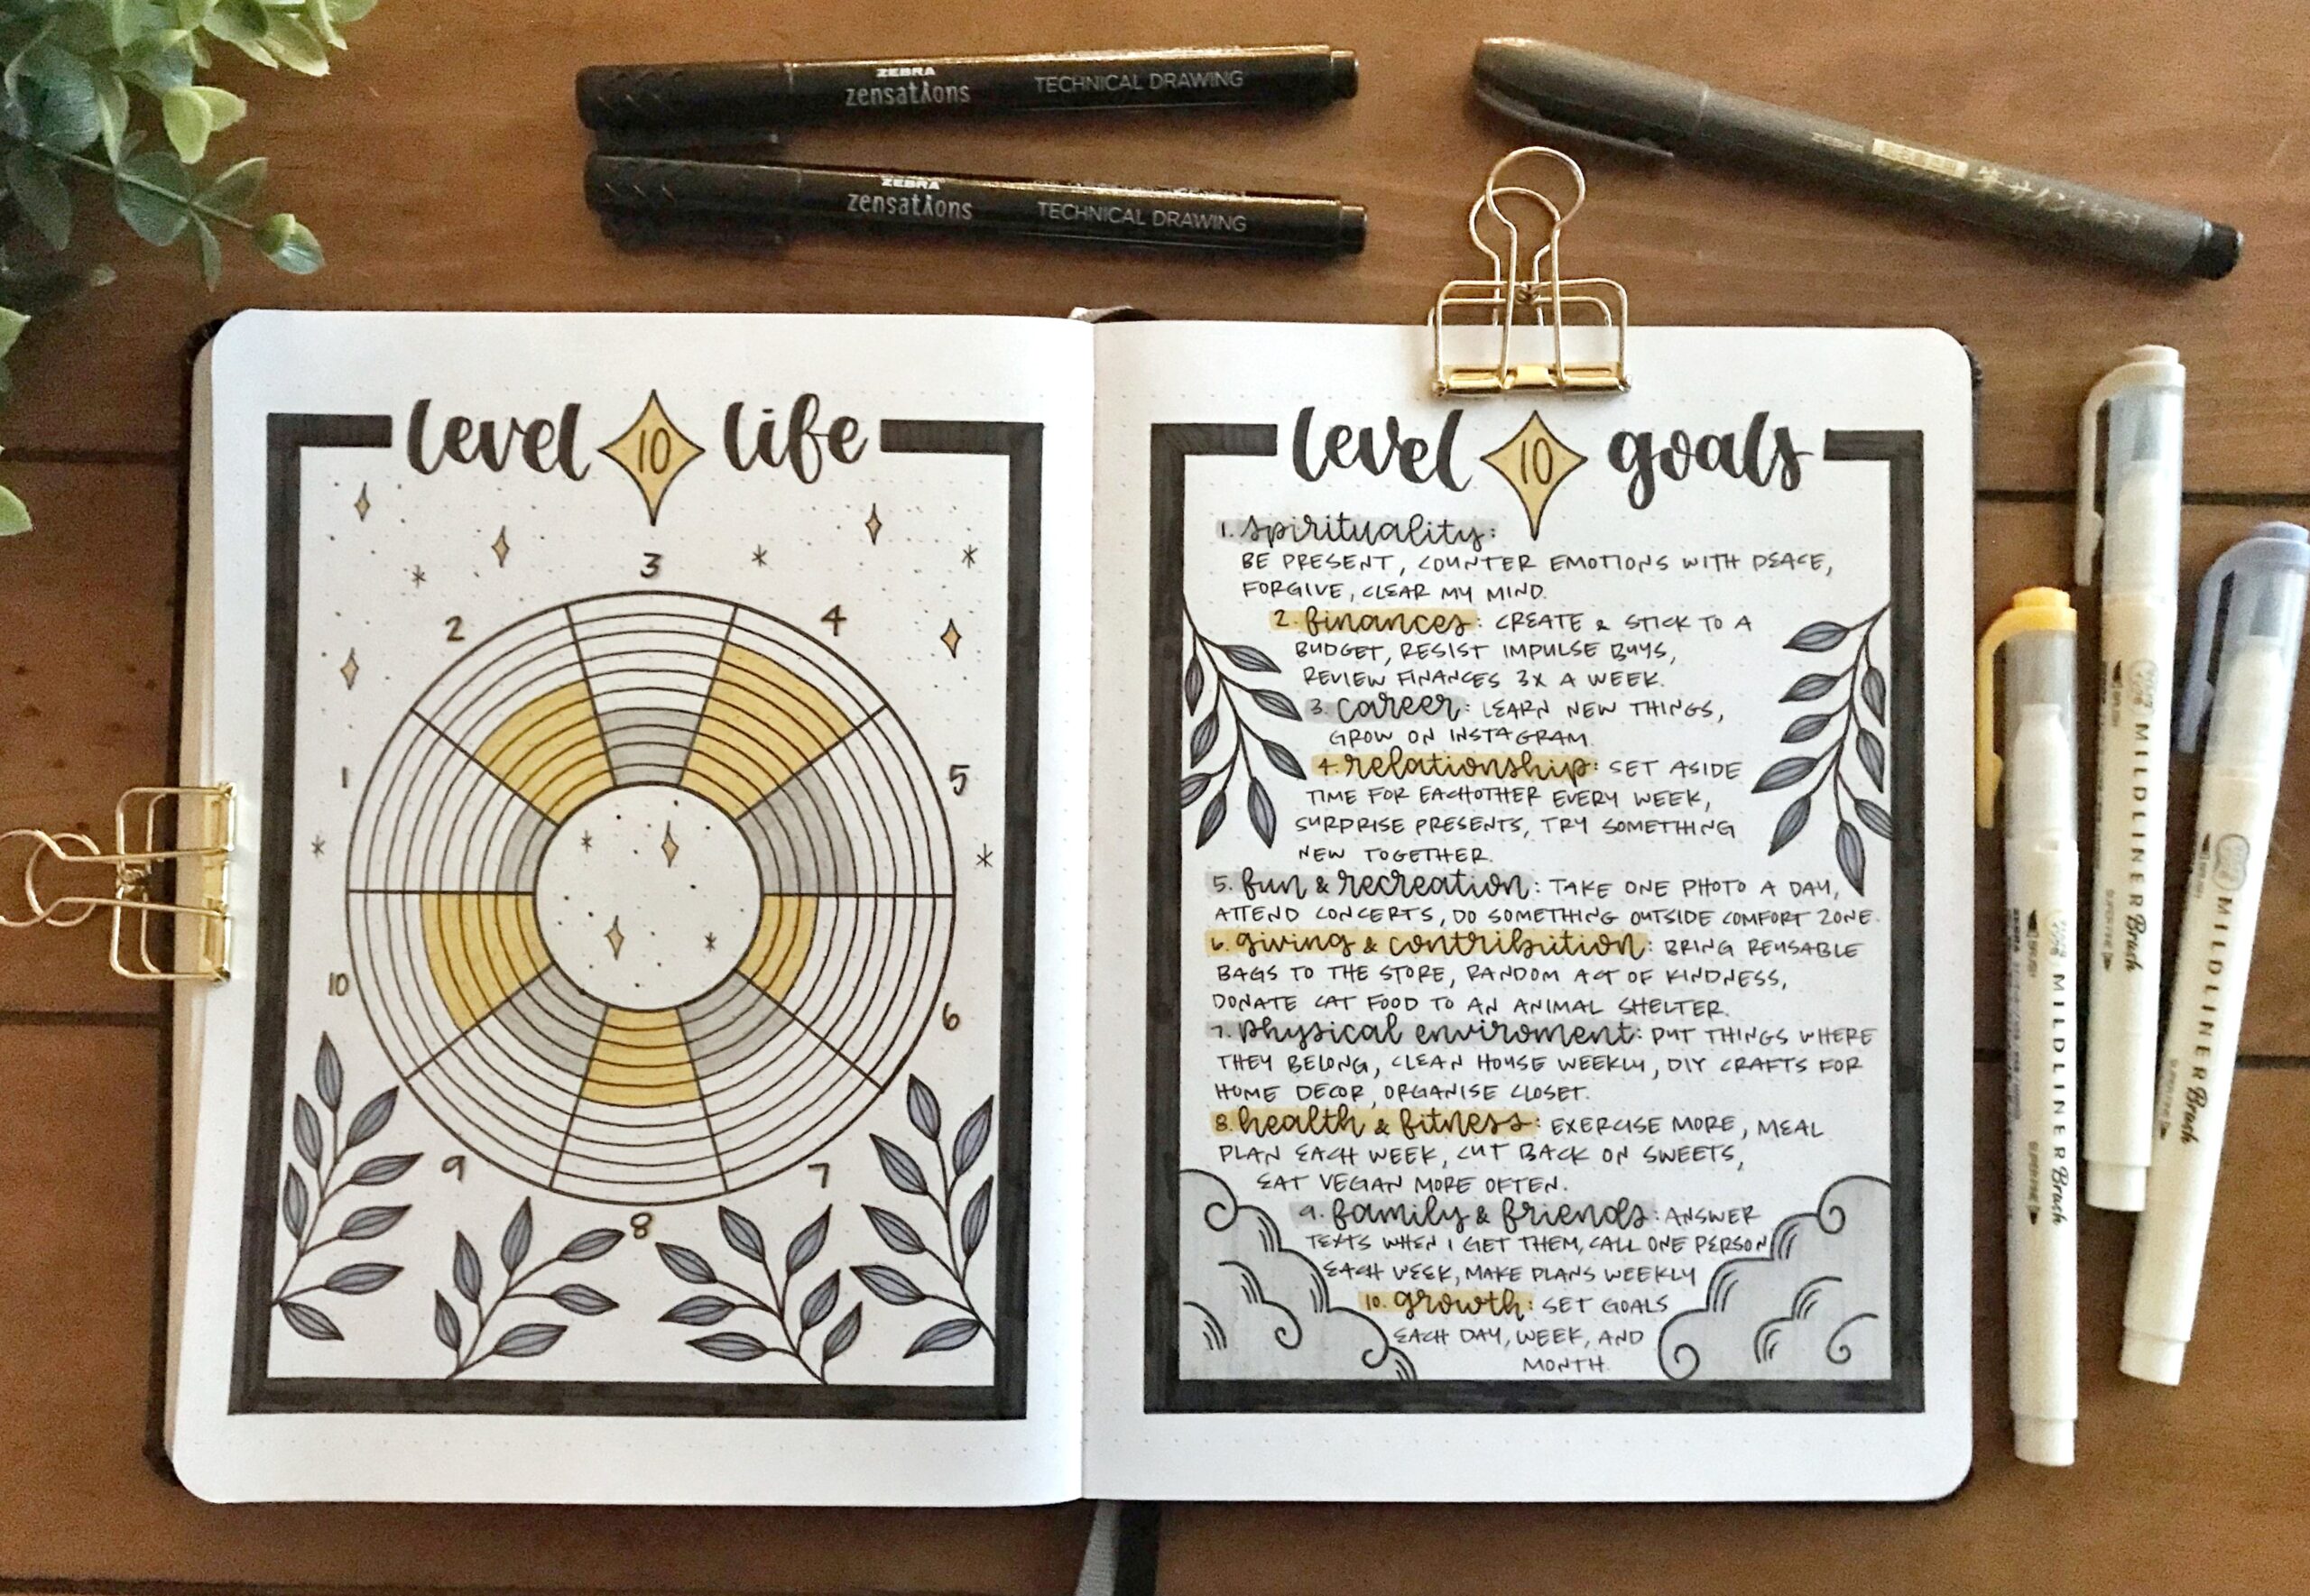 ZEBRA
zensations TECHNICAL DRAWING
ZEBRA
zensations TECHNICAL DRAWING
ZEBRA
level 10 life
3
2
4
1
5
10
6
9
7
8
level 10 goals
1. spirituality:
BE PRESENT, COUNTER EMOTIONS WITH PEACE,
FORGIVE, CLEAR MY MIND.
2. finances: CREATE & STICK TO A
BUDGET, RESIST IMPULSE BUYS,
REVIEW FINANCES 3X A WEEK.
3. career: LEARN NEW THINGS,
GROW ON INSTAGRAM.
4. relationship: SET ASIDE
TIME FOR EACHOTHER EVERY WEEK,
SURPRISE PRESENTS, TRY SOMETHING
NEW TOGETHER.
5. fun & recreation: TAKE ONE PHOTO A DAY,
ATTEND CONCERTS, DO SOMETHING OUTSIDE COMFORT ZONE.
6. giving & contribution: BRING REUSABLE
BAGS TO THE STORE, RANDOM ACT OF KINDNESS,
DONATE CAT FOOD TO AN ANIMAL SHELTER.
7. physical enviroment: PUT THINGS WHERE
THEY BELONG, CLEAN HOUSE WEEKLY, DIY CRAFTS FOR
HOME DECOR, ORGANISE CLOSET.
8. health & fitness: EXERCISE MORE, MEAL
PLAN EACH WEEK, CUT BACK ON SWEETS,
EAT VEGAN MORE OFTEN.
9. family & friends: ANSWER
TEXTS WHEN I GET THEM, CALL ONE PERSON
EACH WEEK, MAKE PLANS WEEKLY
10. growth: SET GOALS
EACH DAY, WEEK, AND
MONTH.
MILDLINER Brush
MILDLINER Brush
MILDLINER Brush